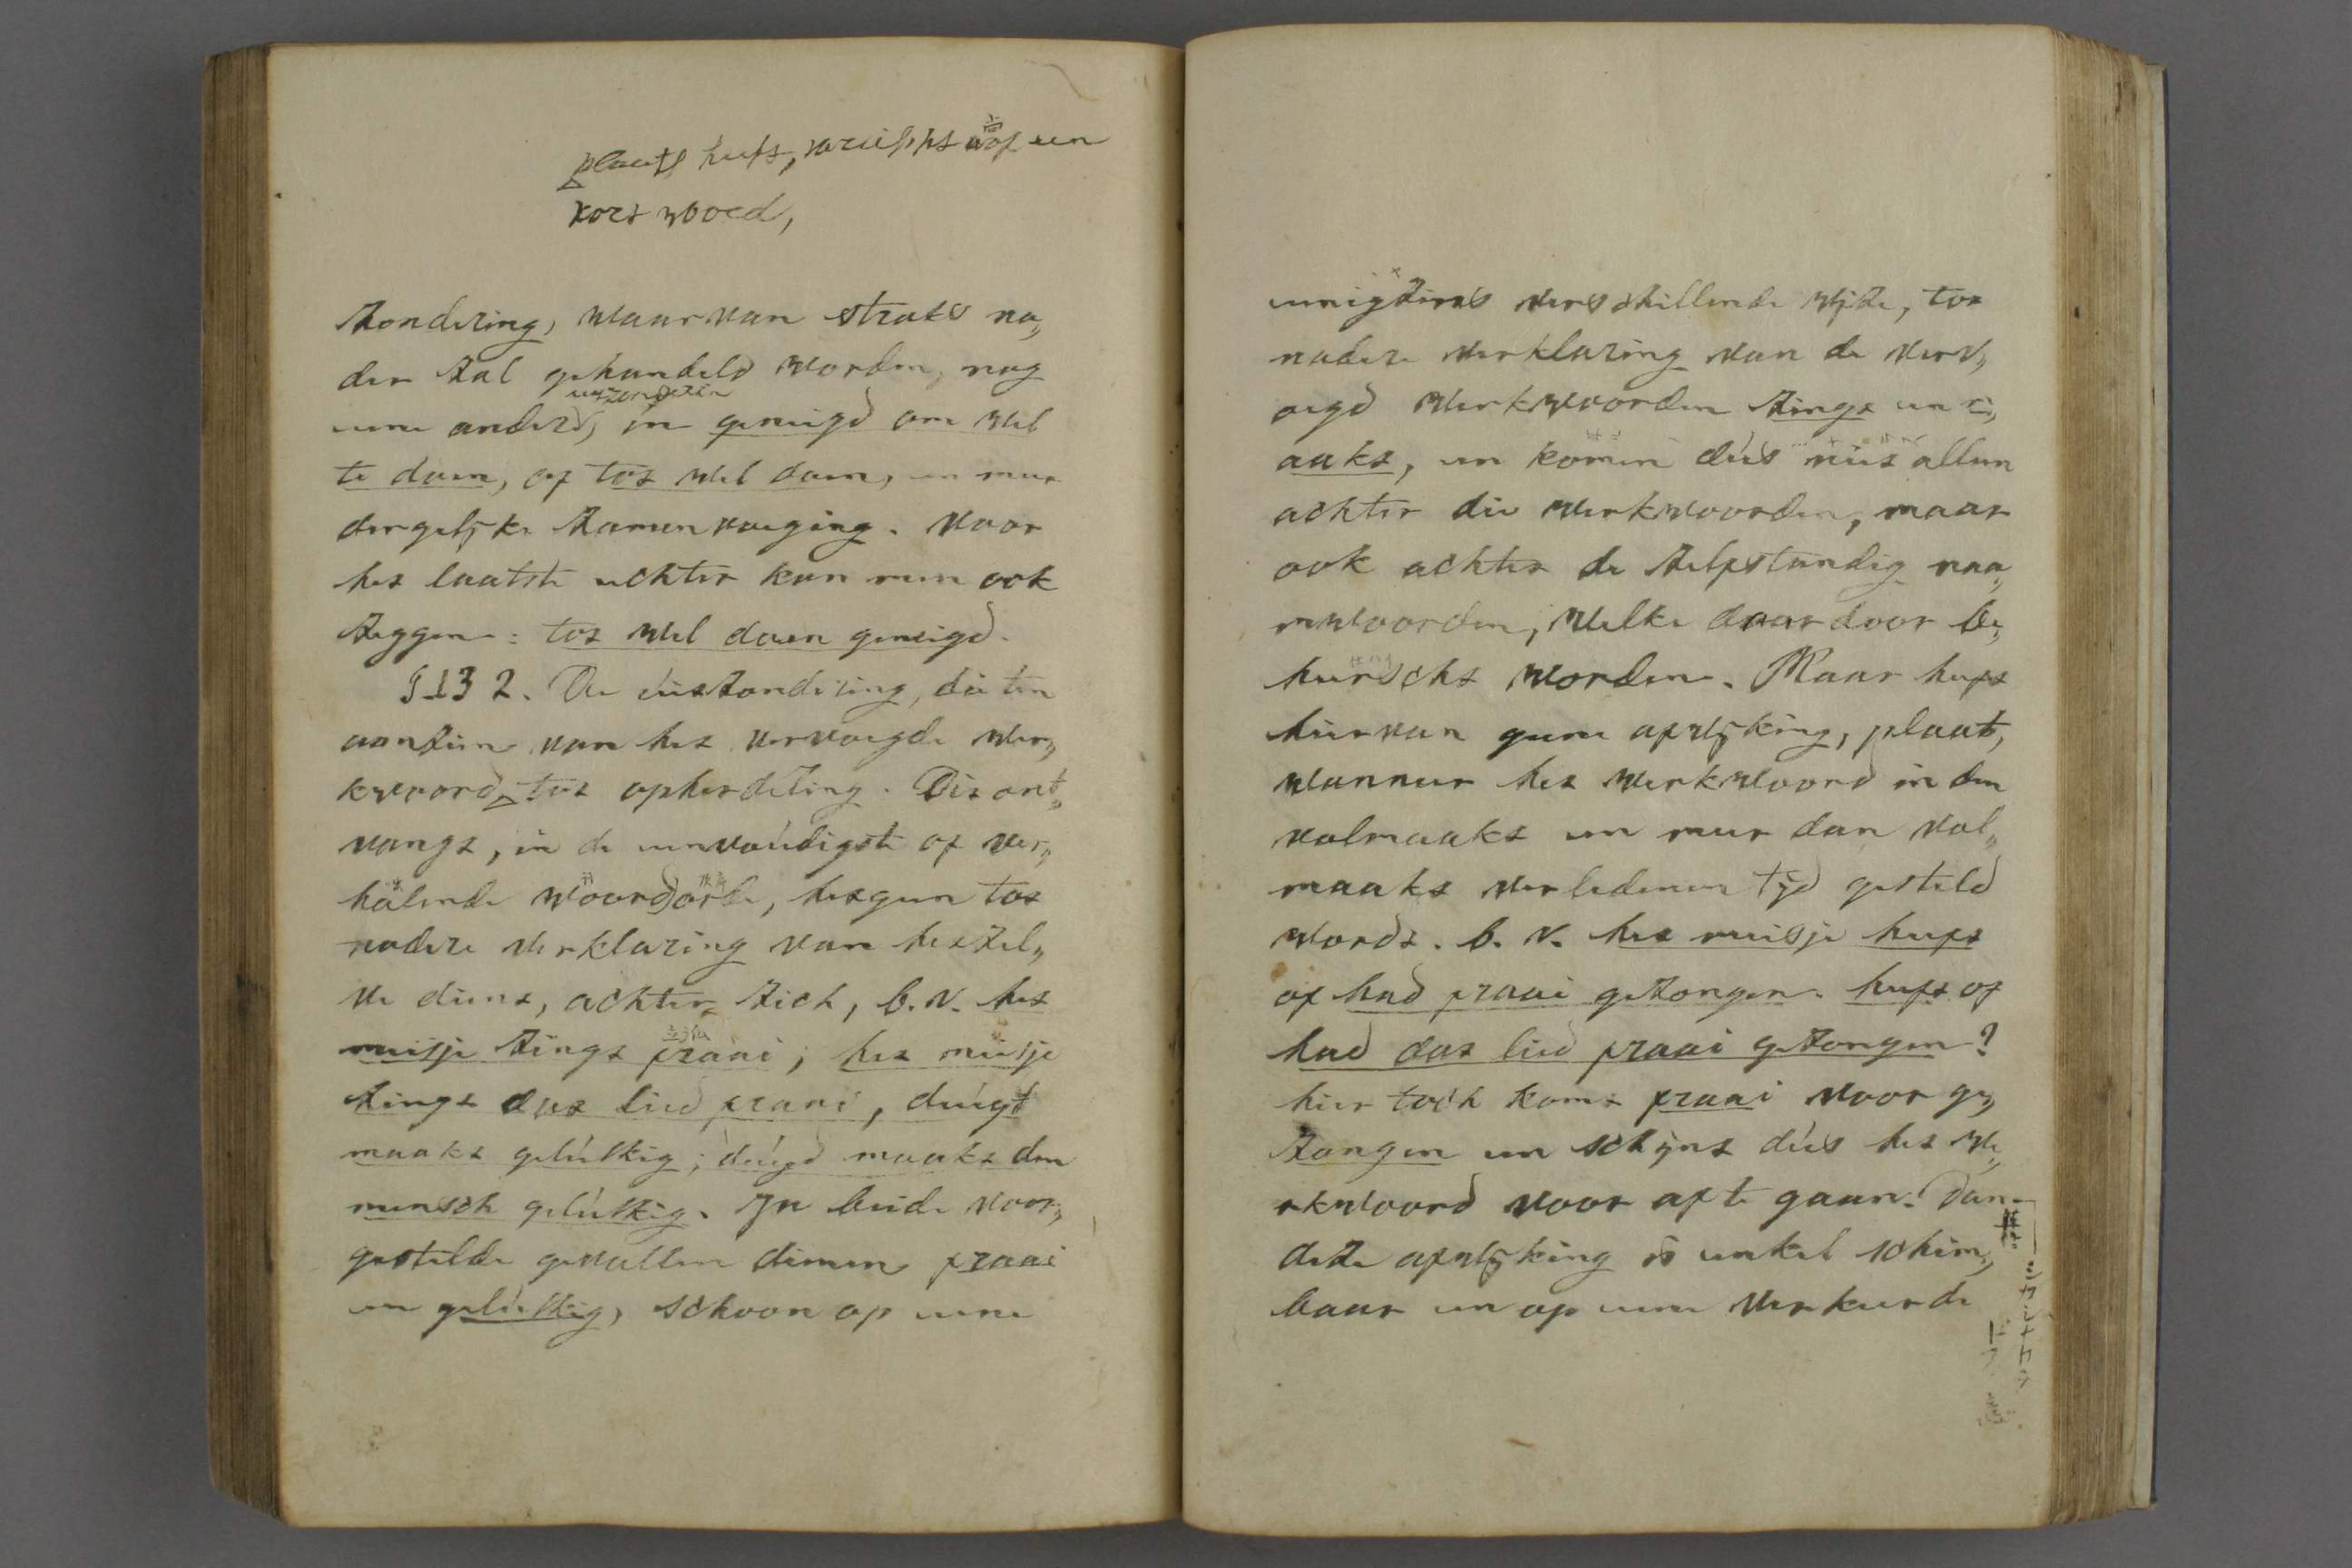 plaats heeft, verschht of een
kort woord,
zondering, waarvan straks na„
der zal gehandeld worden, nog
uitzonderin
eene anderd, in geneigd om wel
te doen, of tot wel doen, en meer
dergelijke zamenvoeging. Voor
het laatste echter kan men ook
zeggen: tot wel doen geneigd.
§132. De uitzondering, die ten
aanzien van het vervoegde wer„
kwoord tot opherdeling. Dit ont„
vangt, in de eenvoudigste of ver„
halende woordorde, hetgeen tot
nadere verklaring van hetzel„
ve dient, achter zich, b.v. het
meisje zingt fraai; het meisje
zingt dat lied fraai, deugt
maakt gelukkig; deugd maakt den
mensch gelukkig. In beide voor„
gestelde gevallen dienen fraai
en gelukkig, schoon op eene
eenigzins verschillende wijze, tot
nadere verklaring van de verv„
oegd werkwoorden zingt en m„
aakt, en komen dus niet alleen
achter die werkwoorden, maar
ook achter de zelfstandig naa„
mwoorden, welke daardoor be„
heerscht worden. Maar heeft
hiervan geene afwijking, plaats,
wanneer het werkwoord in den
volmaakt en meer dan vol„
maakt verledenen tijd gesteld
wordt. b.v. het meisje heeft
of had fraai gezongen. heeft of
had dat lied fraai gezongen?
hier toch komt fraai voor ge„
zongen en schijnt dus het we„
rkwoord voor af te gaan. Dan
deze afwijking is enkel schijn„
baar en op eene verkeerde